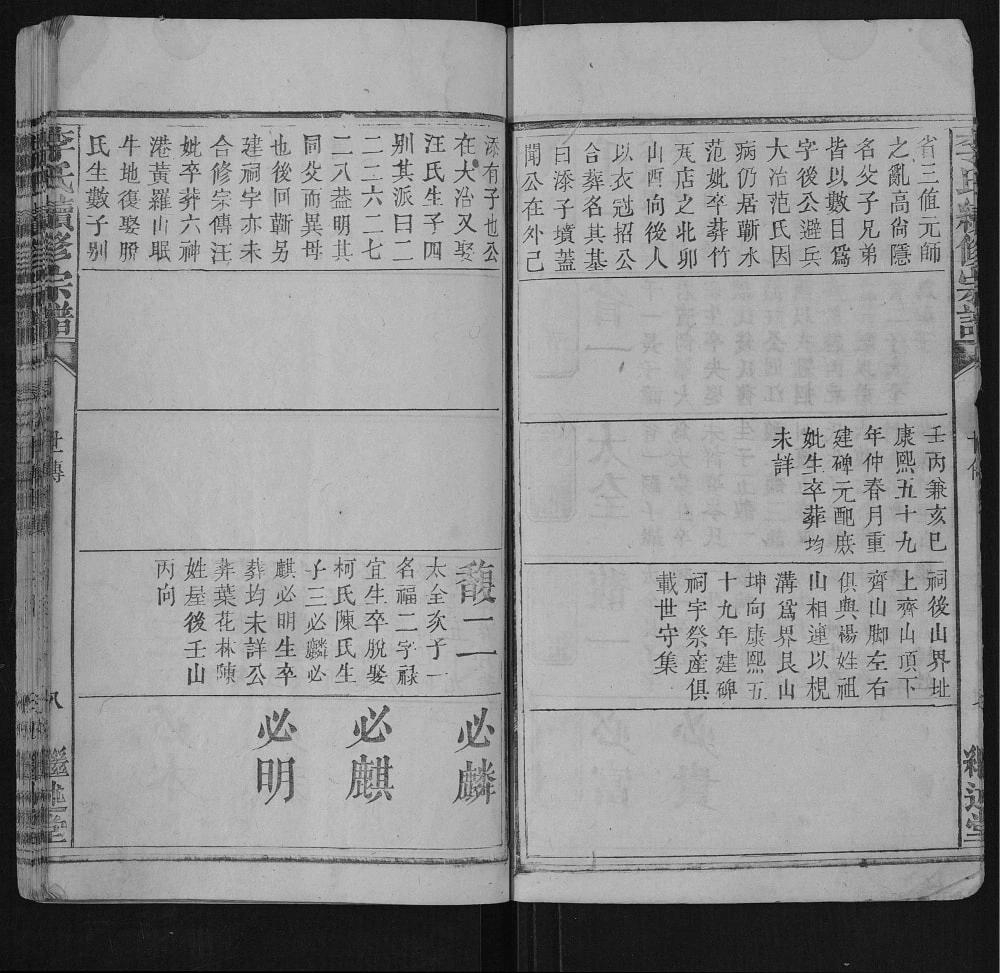 省三值元師
之亂高尚隱
名父子兄弟
皆以數目為
字後公避兵
大冶范氏因
病仍居蘄水
范妣卒葬竹
瓦店之北卯
山酉向後人
以衣冠招公
合葬名其基
曰添子墳蓋
聞公在外已
壬丙兼亥巳
康熙五十九
年仲春月重
建碑元配庶
妣生卒葬均
未詳
祠後山界址
上齊山頂下
齊山脚左右
俱與楊姓祖
山相連以梘
溝為界艮山
坤向康熙五
十九年建碑
祠宇祭產俱
載世守集
添有子也公
在大冶又娶
汪氏生子四
别其派曰二
二二六二七
二八葢明其
同父而異母
也後回蘄另
建祠宇亦未
合修宗傳汪
妣卒葬六神
港黃羅山眠
牛地復娶脫
氏生數子别
馥二
太全亥子一
名福二字禄
宜生卒脫娶
柯氏陳氏生
子三必麟必
麒必明生卒
葬均未詳公
葬葉花林陳
姓屋後壬山
丙向
必麟
必麒
必明
李氏續修宗譜
世傳
八
繼述堂